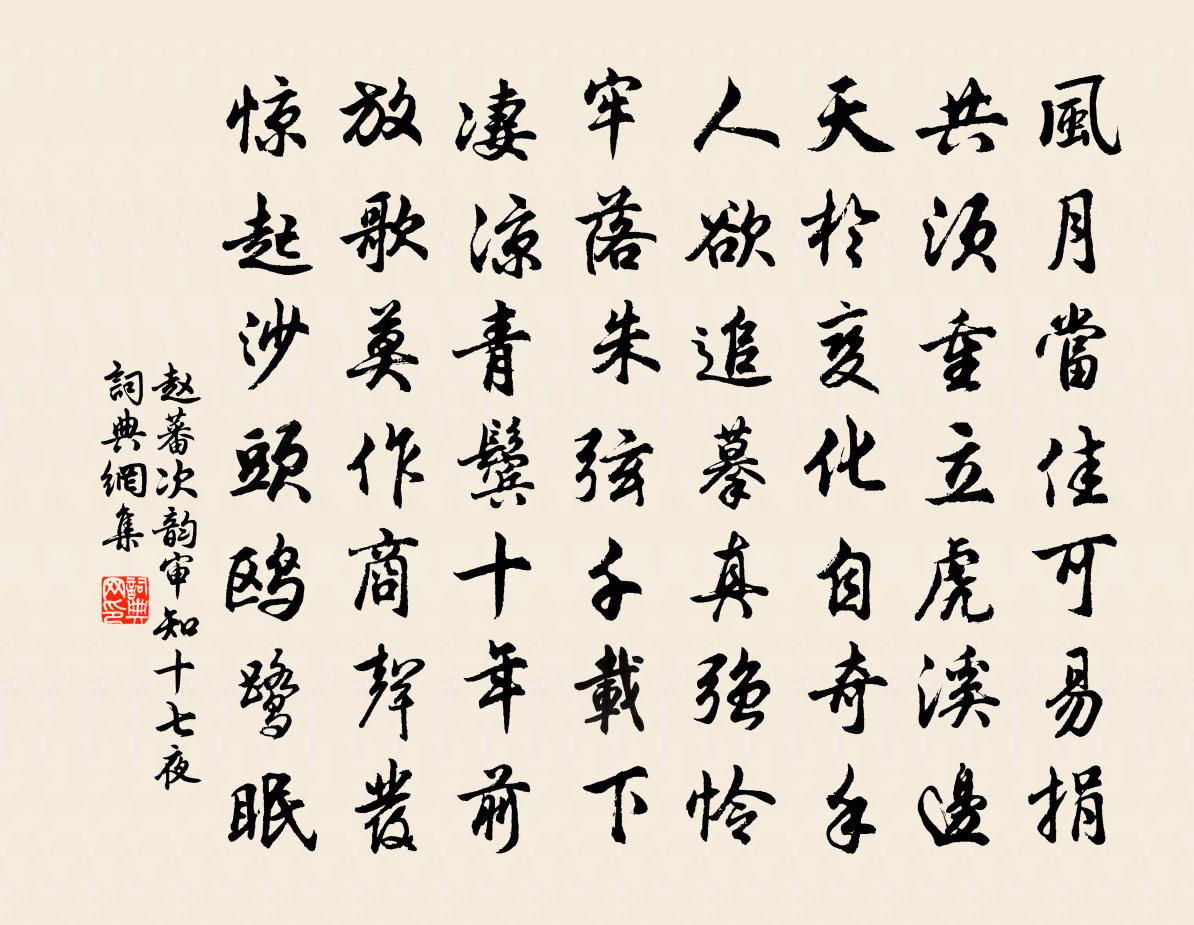 風月當佳可易捐
共須重立虎溪邊
天於变化自奇手
人欲追摹真强怜
牢落朱弦千載下
凄涼青鬓十年前
放歌莫作商聲發
惊起沙頭鸥鹭眠
赵蕃次韵审知十七夜
詞典網集
詞典網印